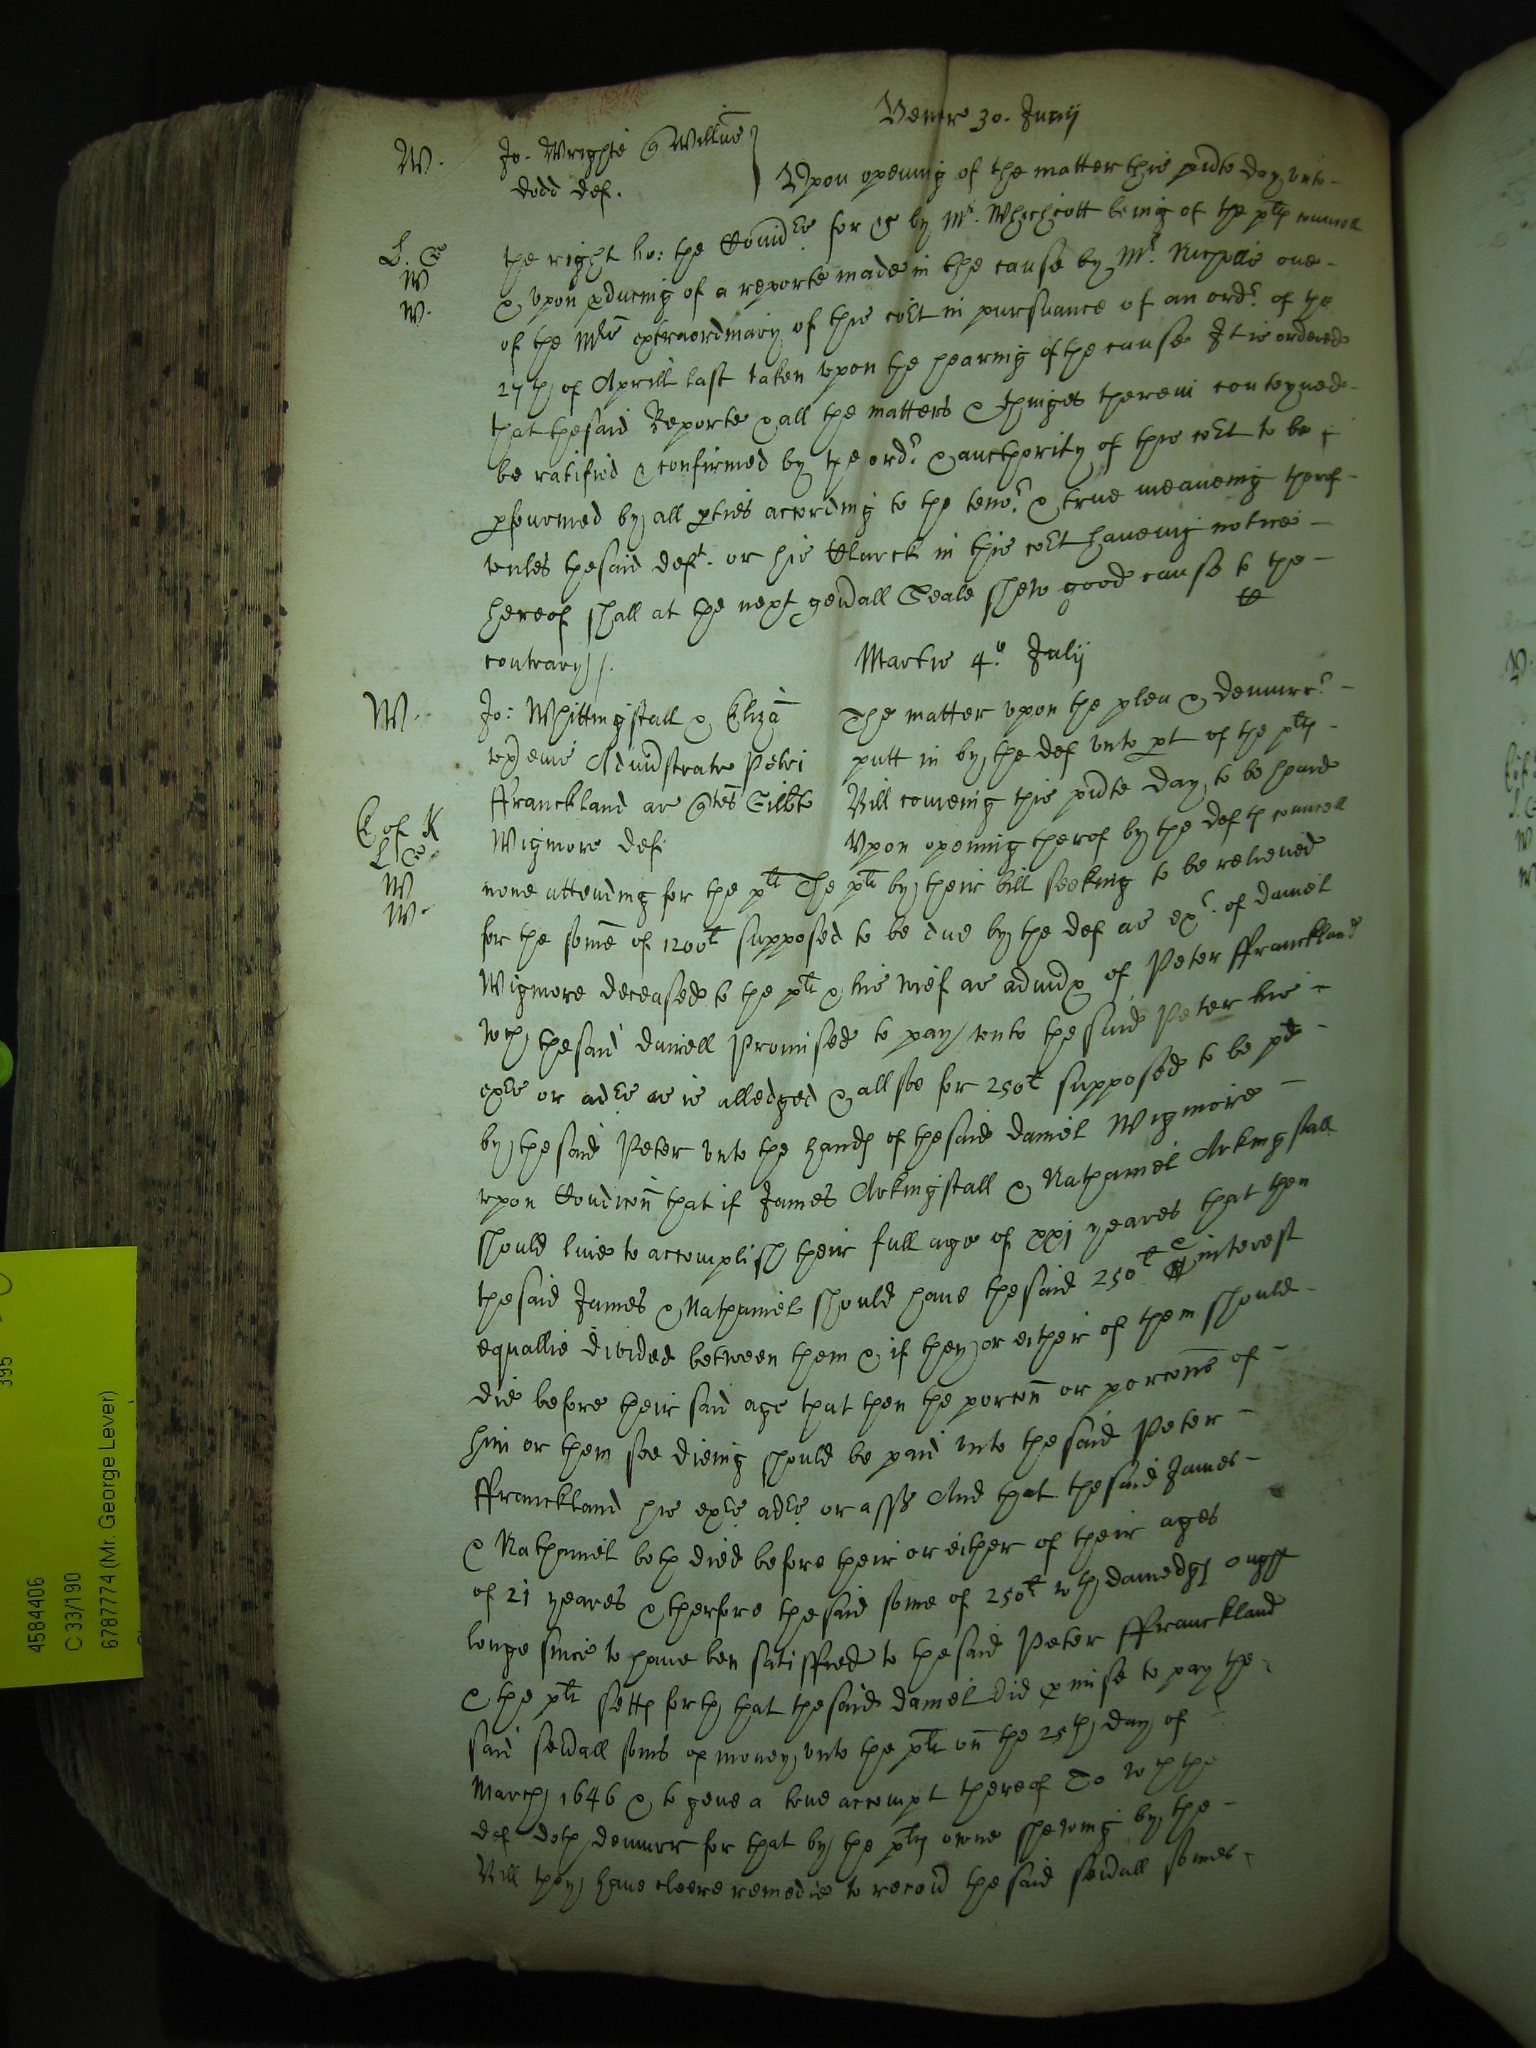 Veneris 30. Junij
W. Jo. Wrighte q Willm̄
dodd def. Upon opening of the matter this p̃nte day unto
L. Co the right ho: the Com̃rs for &c by Mr. Whichcott being of the pltes councell
W & upon p̱ducing of a reporte made in the cause by Mr. Nicholls one
W. of the Mrs extraordinary of this co̅rt in pursuance of an ordr. of the
27th of Aprill last taken upon the hearing of the cause It is ordered
that the said Reporte & all the matters & thinges therein conteyned
be ratified & confirmed by the ordr. & aucthority of this co̅rt to be
p̱formed by all p̱ties according to the tenor. & true meaneing therof
unles the said deft. or his Clarck in this co̅rt haueing notice
hereof shall at the next gen̅all Seale shew good cause to the
contrary //.
Martis 4to. Julij
W. Jo: Whittingstall & Eliza The matter upon the plea & demurrr
ux̱ eius Adm̃stratr Petri putt in by the def unto p̱t of the pltes
ffranckland ar q̱tes Gilb̅te Bill comeing this p̃nte day to be heard
E of K Wigmore def Upon opening therof by the deftes councell
L Co none attending for the plt The plt by their bill seeking to be releived
W for the some of 1200li supposed to be due by the def as exr. of daniel
W. Wigmore deceased to the plt & his wief as admx̱ of Peter ffranckland
wch the said daniell Promised to pay unto the said Peter his
exrs or adrs as is alledged & allsoe for 250li supposed to be pd
by the said Peter unto the hands of the said daniel Wigmore
upon Condicon̄ that if James Arkingstall & Nathaniel Arkingstall
should liue to accomplish their full age of xxj yeares that then
the said James & Nathaniel should haue the said 250li & interest
equallie divided between them & if they or either of them should
die before their said age that then the porcon̄ or porcon̄s of
him or them soe dieing should be paid unto the said Peter
ffranckland his exrs adrs or asss And that the said James
& Nathaniel both died before their or either of their ages
of 21 yeares & therfore the said some of 250li wth damedges ought
longe since to haue ben satisffied to the said Peter ffranckland
& the plt setts forth that the said daniel did p̱mise to pay the
said sev̅all soms of money unto the plt on the 25th day of
March 1646 & to geue a true accompt thereof To wch the
def doth demurr for that by the pltes owne shewing by the
Bill they haue cleere remedie to recov̅ the said sev̅all somes
4584406
C 33/190
6787774 (Mr. George Lever)
395